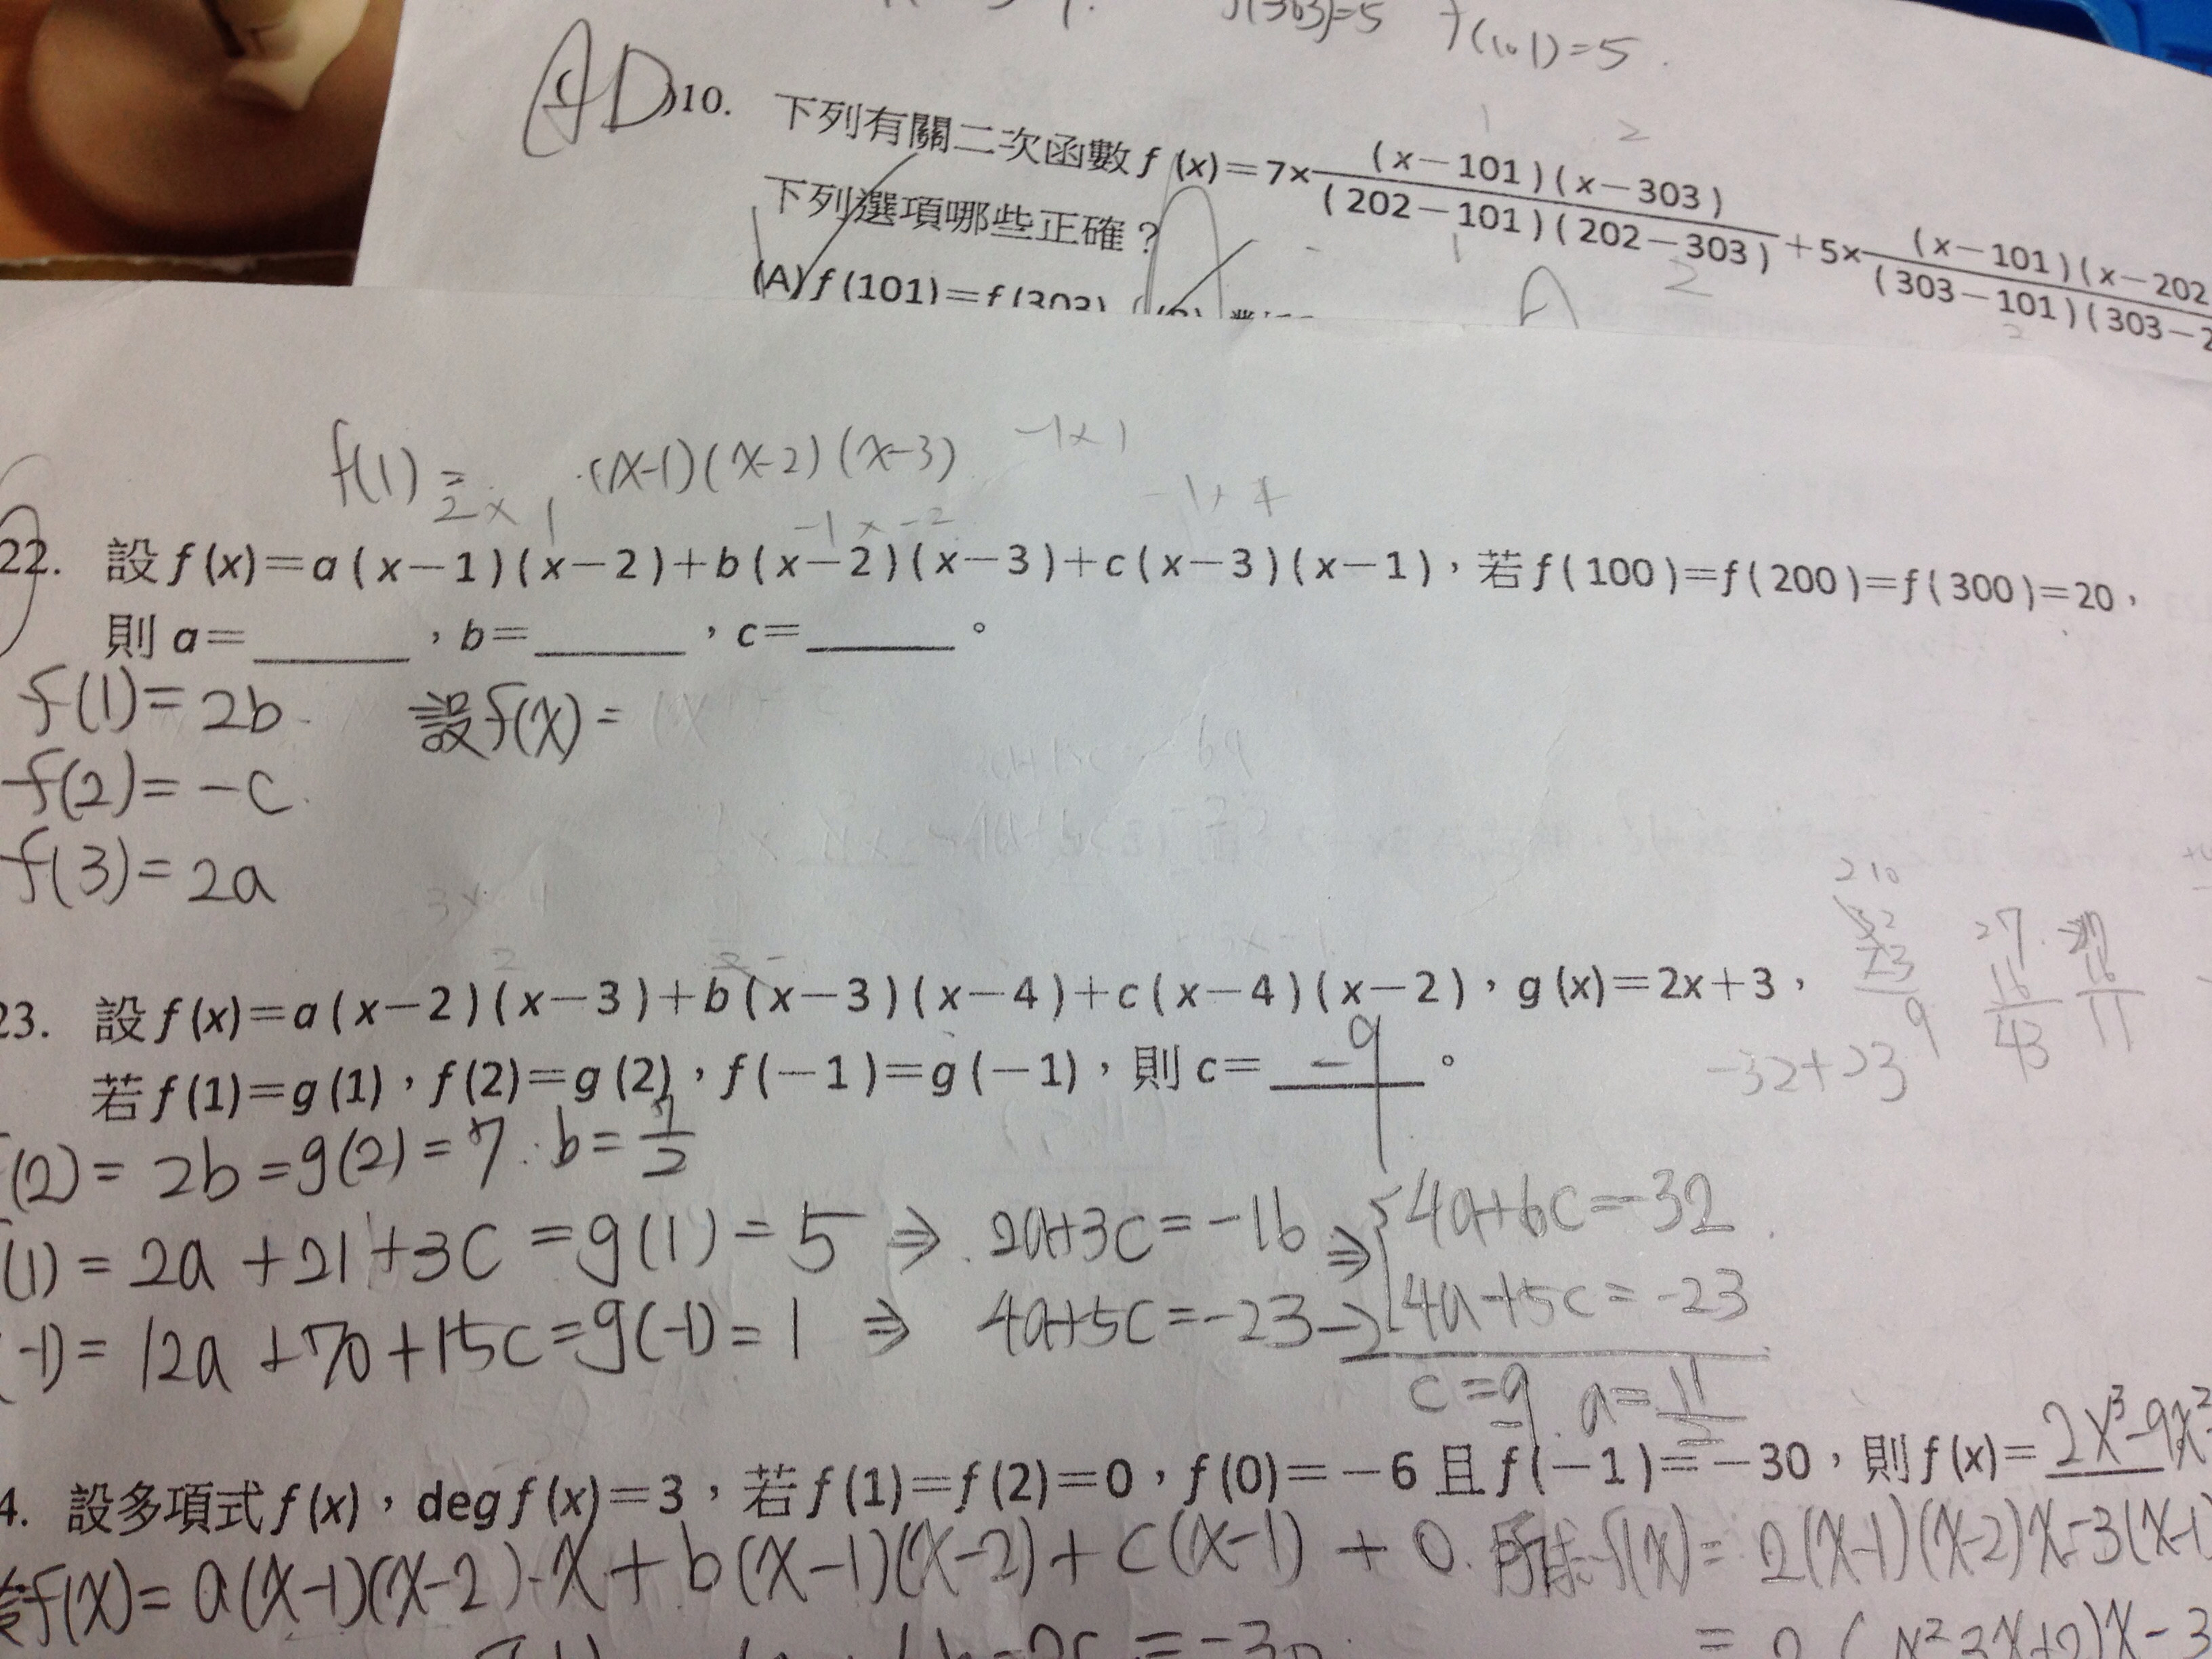 f(303)=5 f(101)=5.
D)10. 下列有關二次函數f(x)=7×(x-101)(x-303)/(202-101)(202-303)+5×(x-101)(x-202/(303-101)(303-2
下列選項哪些正確?
(A)f(101)=f(303)
f(1)= (x-1)(x-2)(x-3) -1×1
2×1 -1×-2
22. 設f(x)=a(x-1)(x-2)+b(x-2)(x-3)+c(x-3)(x-1),若f(100)=f(200)=f(300)=20,
則a=______,b=______,c=______。
f(1)=2b 設f(x)=
f(2)=-c
f(3)=2a
23. 設f(x)=a(x-2)(x-3)+b(x-3)(x-4)+c(x-4)(x-2),g(x)=2x+3,
若f(1)=g(1),f(2)=g(2),f(-1)=g(-1),則c=-9。
-32+23
(2)=2b=g(2)=7.b=7/2
(1)=2a+21+3c=g(1)=5⇒2a+3c=-16⇒4a+6c=-32
-1)=12a+70+15c=g(-1)=1⇒4a+5c=-23 4a+5c=-23
c=-9.a=11/2
4. 設多項式f(x),deg f(x)=3,若f(1)=f(2)=0,f(0)=-6且f(-1)=-30,則f(x)=2x³-9x²
f(x)=a(x-1)(x-2)·x+b(x-1)(x-2)+c(x-1)+0.所求f(x)=2(x-1)(x-2)x-3(x-1
=-30.
=2(x²-3x+2)x-3